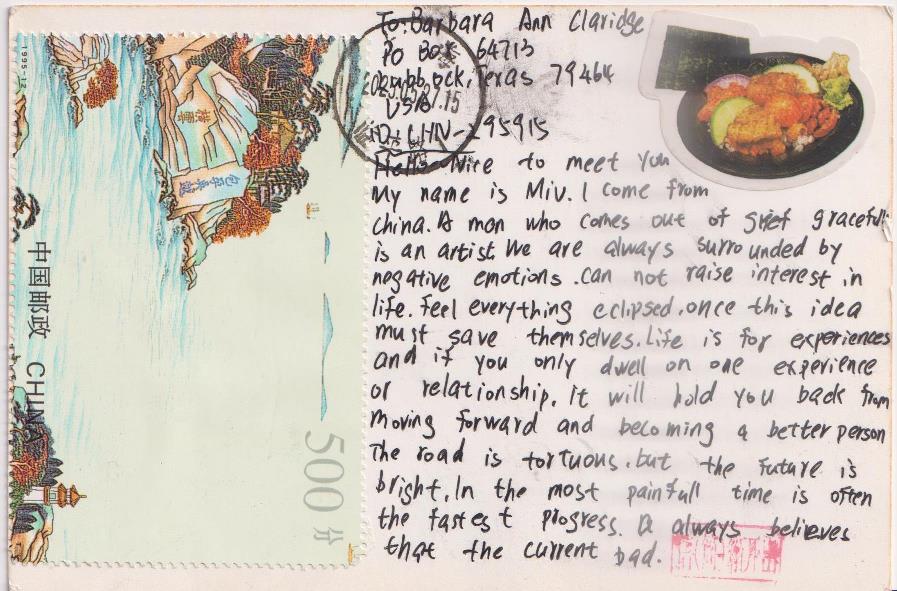 To: Barbara Ann Claridge
PO Box 64713
Lubbock, Texas 79464
USA
ID: CHN-295915
Hello Nice to meet you
My name is Miv. I come from
China. A man who comes out of grief gracefull
is an artist. We are always surrounded by
negative emotions. can not raise interest in
life. Feel everything eclipsed. once this idea
must save themselves. Life is for experiences
and if you only dwell on one experience
or relationship, It will hold you back from
moving forward and becoming a better person
The road is tortuous. but the future is
bright. In the most painfull time is often
the fastest progress. A always believes
that the current bad.
1995-12
中国邮政 CHINA
500 分